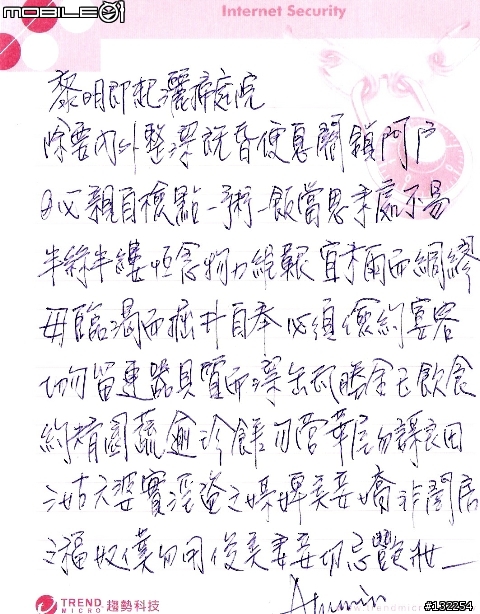 MOBILE01
Internet Security
黎明即起灑掃庭院
除要內外整潔既昏便息關鎖門戶
必親自檢點一粥一飯當思來處不易
半絲半縷恒念物力維艱宜未雨而綢繆
毋臨渴而掘井自奉必須儉約宴客
切勿留連器具質而潔缶瓦勝金玉飲食
約精園蔬逾珍饈勿營華屋勿謀良田
三姑六婆實淫盜之媒婢美妾嬌非閨房
之福奴僕勿用俊美妻妾切忌艷妝
TREND MICRO 趨勢科技
www.trendmicro.com
#132254